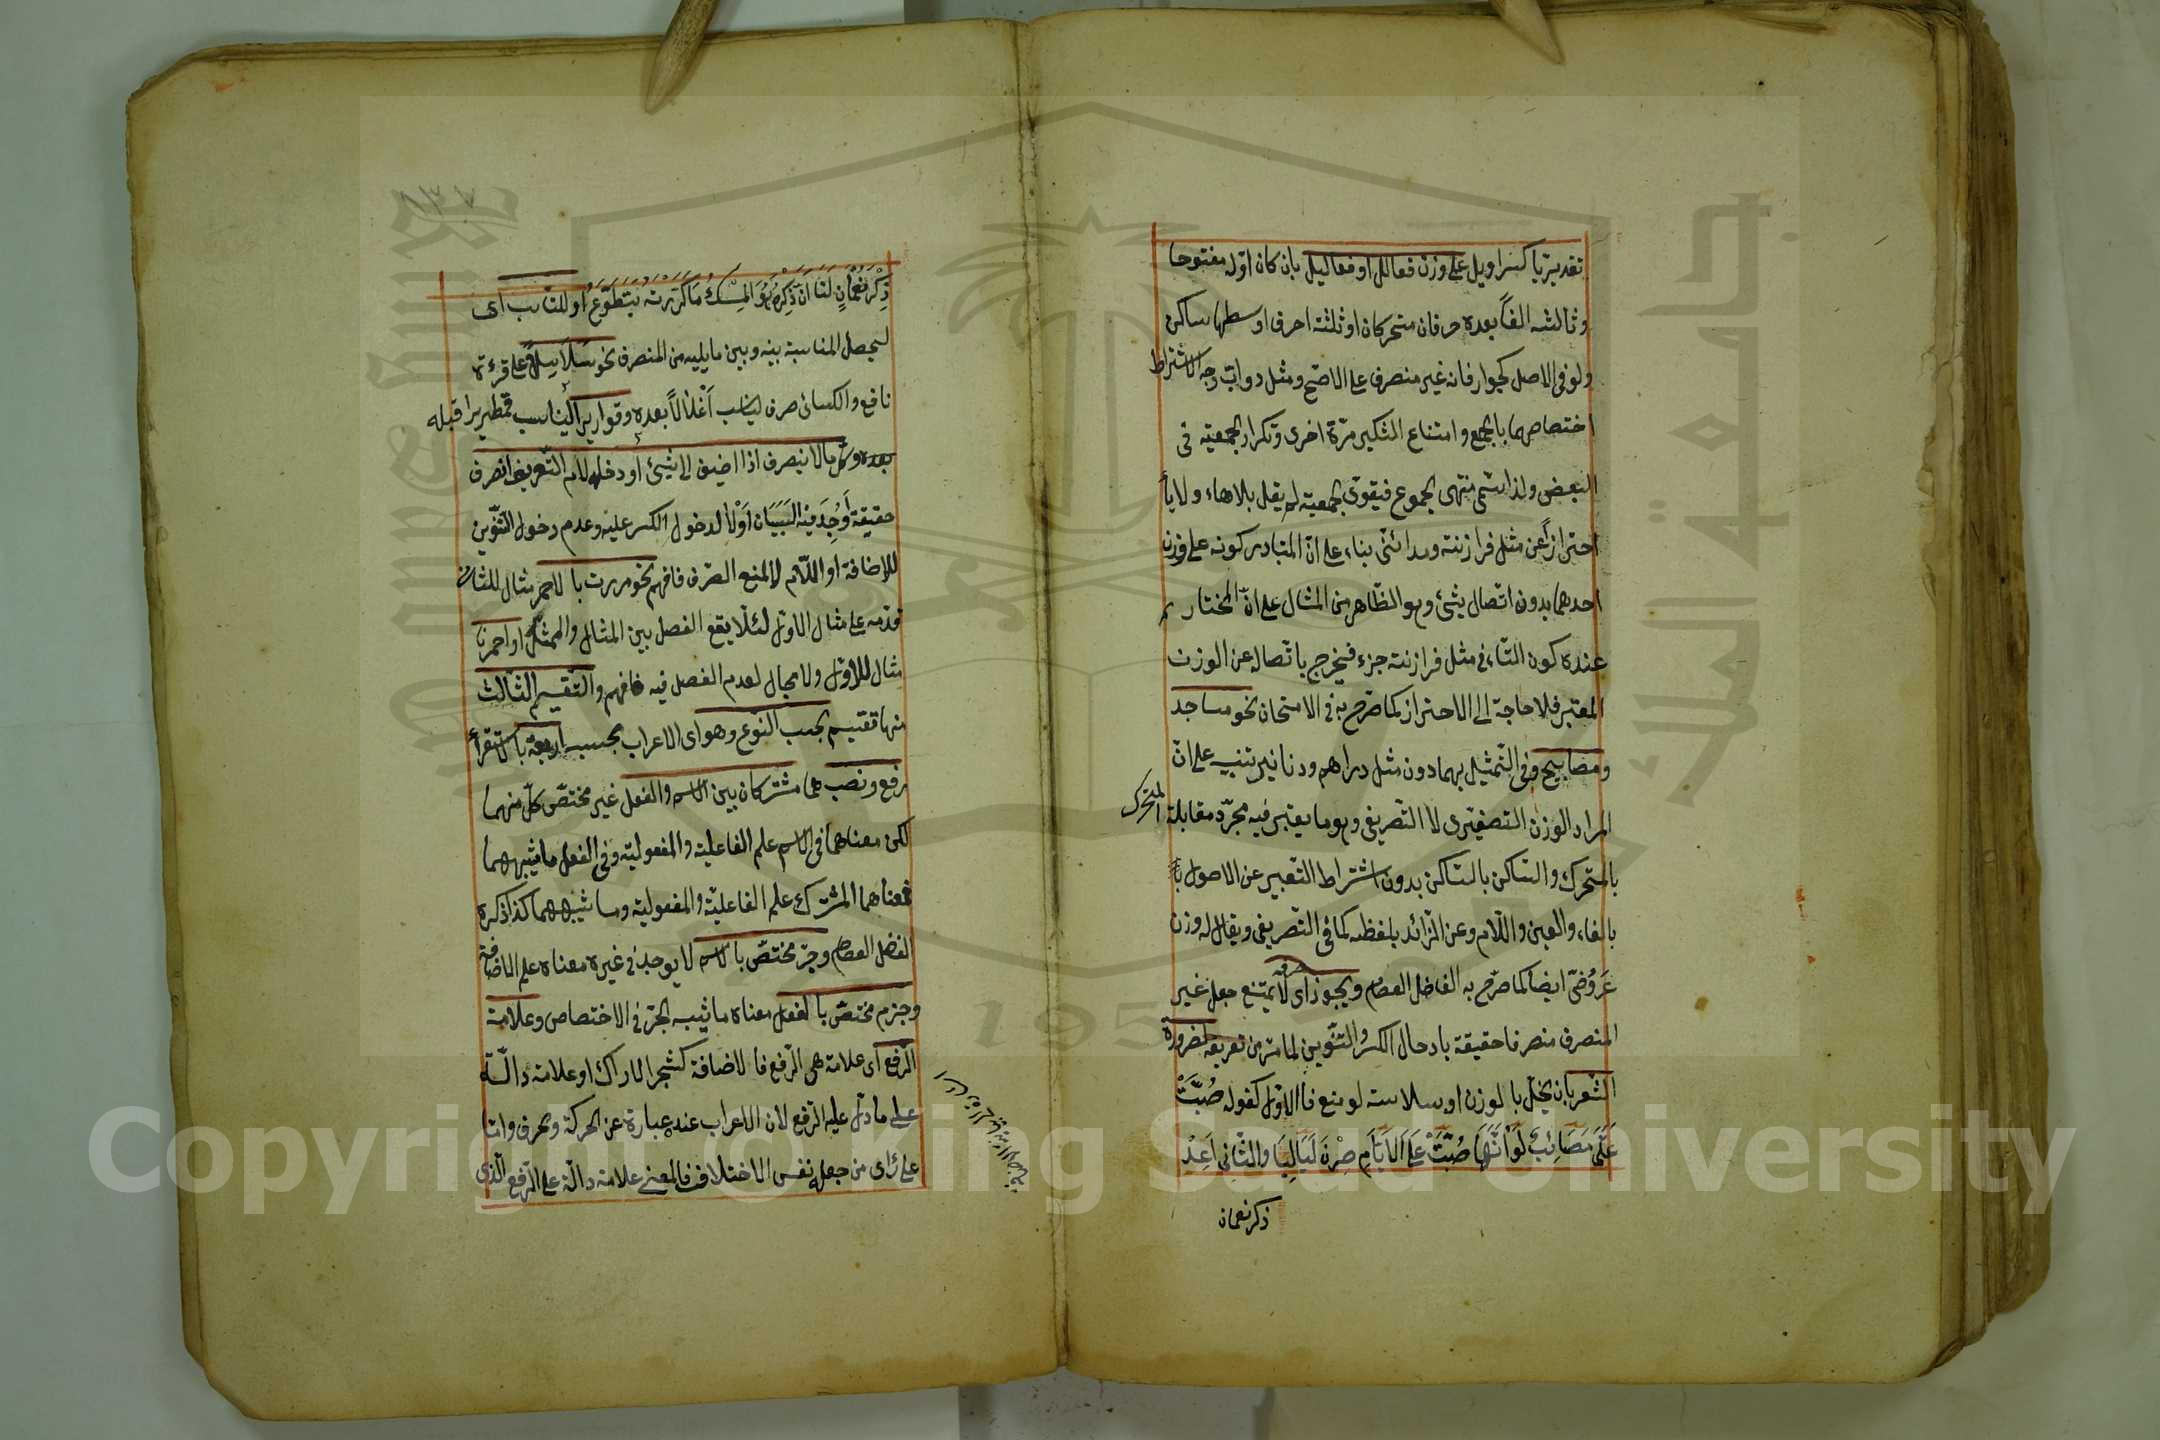 تقديريا كسراويل على وزن فعالل او فعاليل بان كان اوّله مفتوحا
وثالثه الفًا بعده حرفان متحركان او ثلثة احرف اوسطها ساكن
ولو فى الاصل كجوار فانه غير منصرف على الاصح ومثل دوابّ وجه الاشتراط
اختصاصهما بالجمع وامتناع التكسير مرّة اخرى وتكرار الجمعيّة فى
البعض ولذا سمّى منتهى الجموع فيقوى الجمعيّة لم يقل بلا هاء ولا ياء
احترازًا عن مثل فرازنة ومدائنىّ بناء على انّ المتبادر كونه على وزن
احدهما بدون اتصال شئ وهو الظاهر من المثال على انّ المختار
عنده كون التاء فى مثل فرازنة جزء فيخرج باتصاله عن الوزن
المعتبر فلا حاجة الى الاحتراز كما صرّح به فى الامتحان نحو مساجد
ومصابيح وفى التمثيل بهما دون مثل دراهم ودنانير تنبيه على انّ
المراد الوزن التصغيرى لا التصريفى وهو ما يعتبر فيه مجرّد مقابلة المتحرك
بالمتحرك والساكن بالساكن بدون اشتراط التعبير عن الاصول
بالفاء والعين واللام وعن الزائد بلفظه كما فى التصريفى ويقال له وزن
عَرُوضىّ ايضا كما صرّح به الفاضل العصام ويجوز اى لا يمتنع جعل غير
المنصرف منصرفا حقيقة بادخال الكسر والتنوين لما مرّ من تعريفه لضرورة
الشعر بان يخلّ بالوزن او سلاسته لو منع فالاوّل كقوله صُبَّتْ
عَلَىَّ مَصَائِبٌ لَوْ اَنَّهَا صُبَّتْ عَلَى الاَيَّامِ صِرْنَ لَيَالِيَا والثانى اَعِدْ
ذكر نعمان
ذِكْرَ نُعْمَانٍ لَنَا اَنَّ ذِكْرَهُ هُوَ المِسْكُ مَا كَرَّرْتَهُ يَتَضَوَّعُ او للتناسب اى
ليحصل المناسبة بينه وبين ما يليه من المنصرف نحو سَلَاسِلًا على قرءة
نافع والكسائى صرف ليناسب اَغْلَالاً بعده وقواريرا ليناسب قمطريرا قبله
بعده وكلّ ما لا ينصرف اذا اضيف الى شئ او دخله لام التّعريف انصرف
حقيقة اَوُجِدَ فيه السَّبَبَان اَوْلا لدخول الكسر عليه وعدم دخول التنوين
للاضافة او اللّام لا لمنع الصّرف فافهم نحو مررت بالاحمر مثال للثانى
قدّمه على مثال الاوّل لئلّا يقع الفصل بين المثال والممثّل او احمرنا
مثال للاوّل ولا مجال لعدم الفصل فيه فافهم والتقسيم الثالث
منها تقسيم بحسب النّوع وهو اى الاعراب بحسبه اربعة بالاستقراء
رفع ونصب هما مشتركان بين الاسم والفعل غير مختصّ كلّ منهما
لكن معناهما فى الاسم علم الفاعلية والمفعولية وفى الفعل ما يشبههما
فمعناهما المشترك علم الفاعليّة والمفعوليّة وما يشبههما كذا ذكره
الفضل العصام وجرّ مختصّ بالاسم لا يوجد فى غيره معناه علم الاضافة
وجزم مختصّ بالفعل معناه ما يشبه الجرّ فى الاختصاص وعلامة
الرّفع اى علامة هى الرّفع فالاضافة كشجر الاراك او علامة دالّة
على ما دلّ عليه الرّفع لان الاعراب عنده عبارة عن الحركة والحرف وامّا
على رأى من جعله نفس الاختلاف فالمعنى علامة دالّة على الرّفع الّذى
Copyright © King Saud University
جامعة الملك سعود